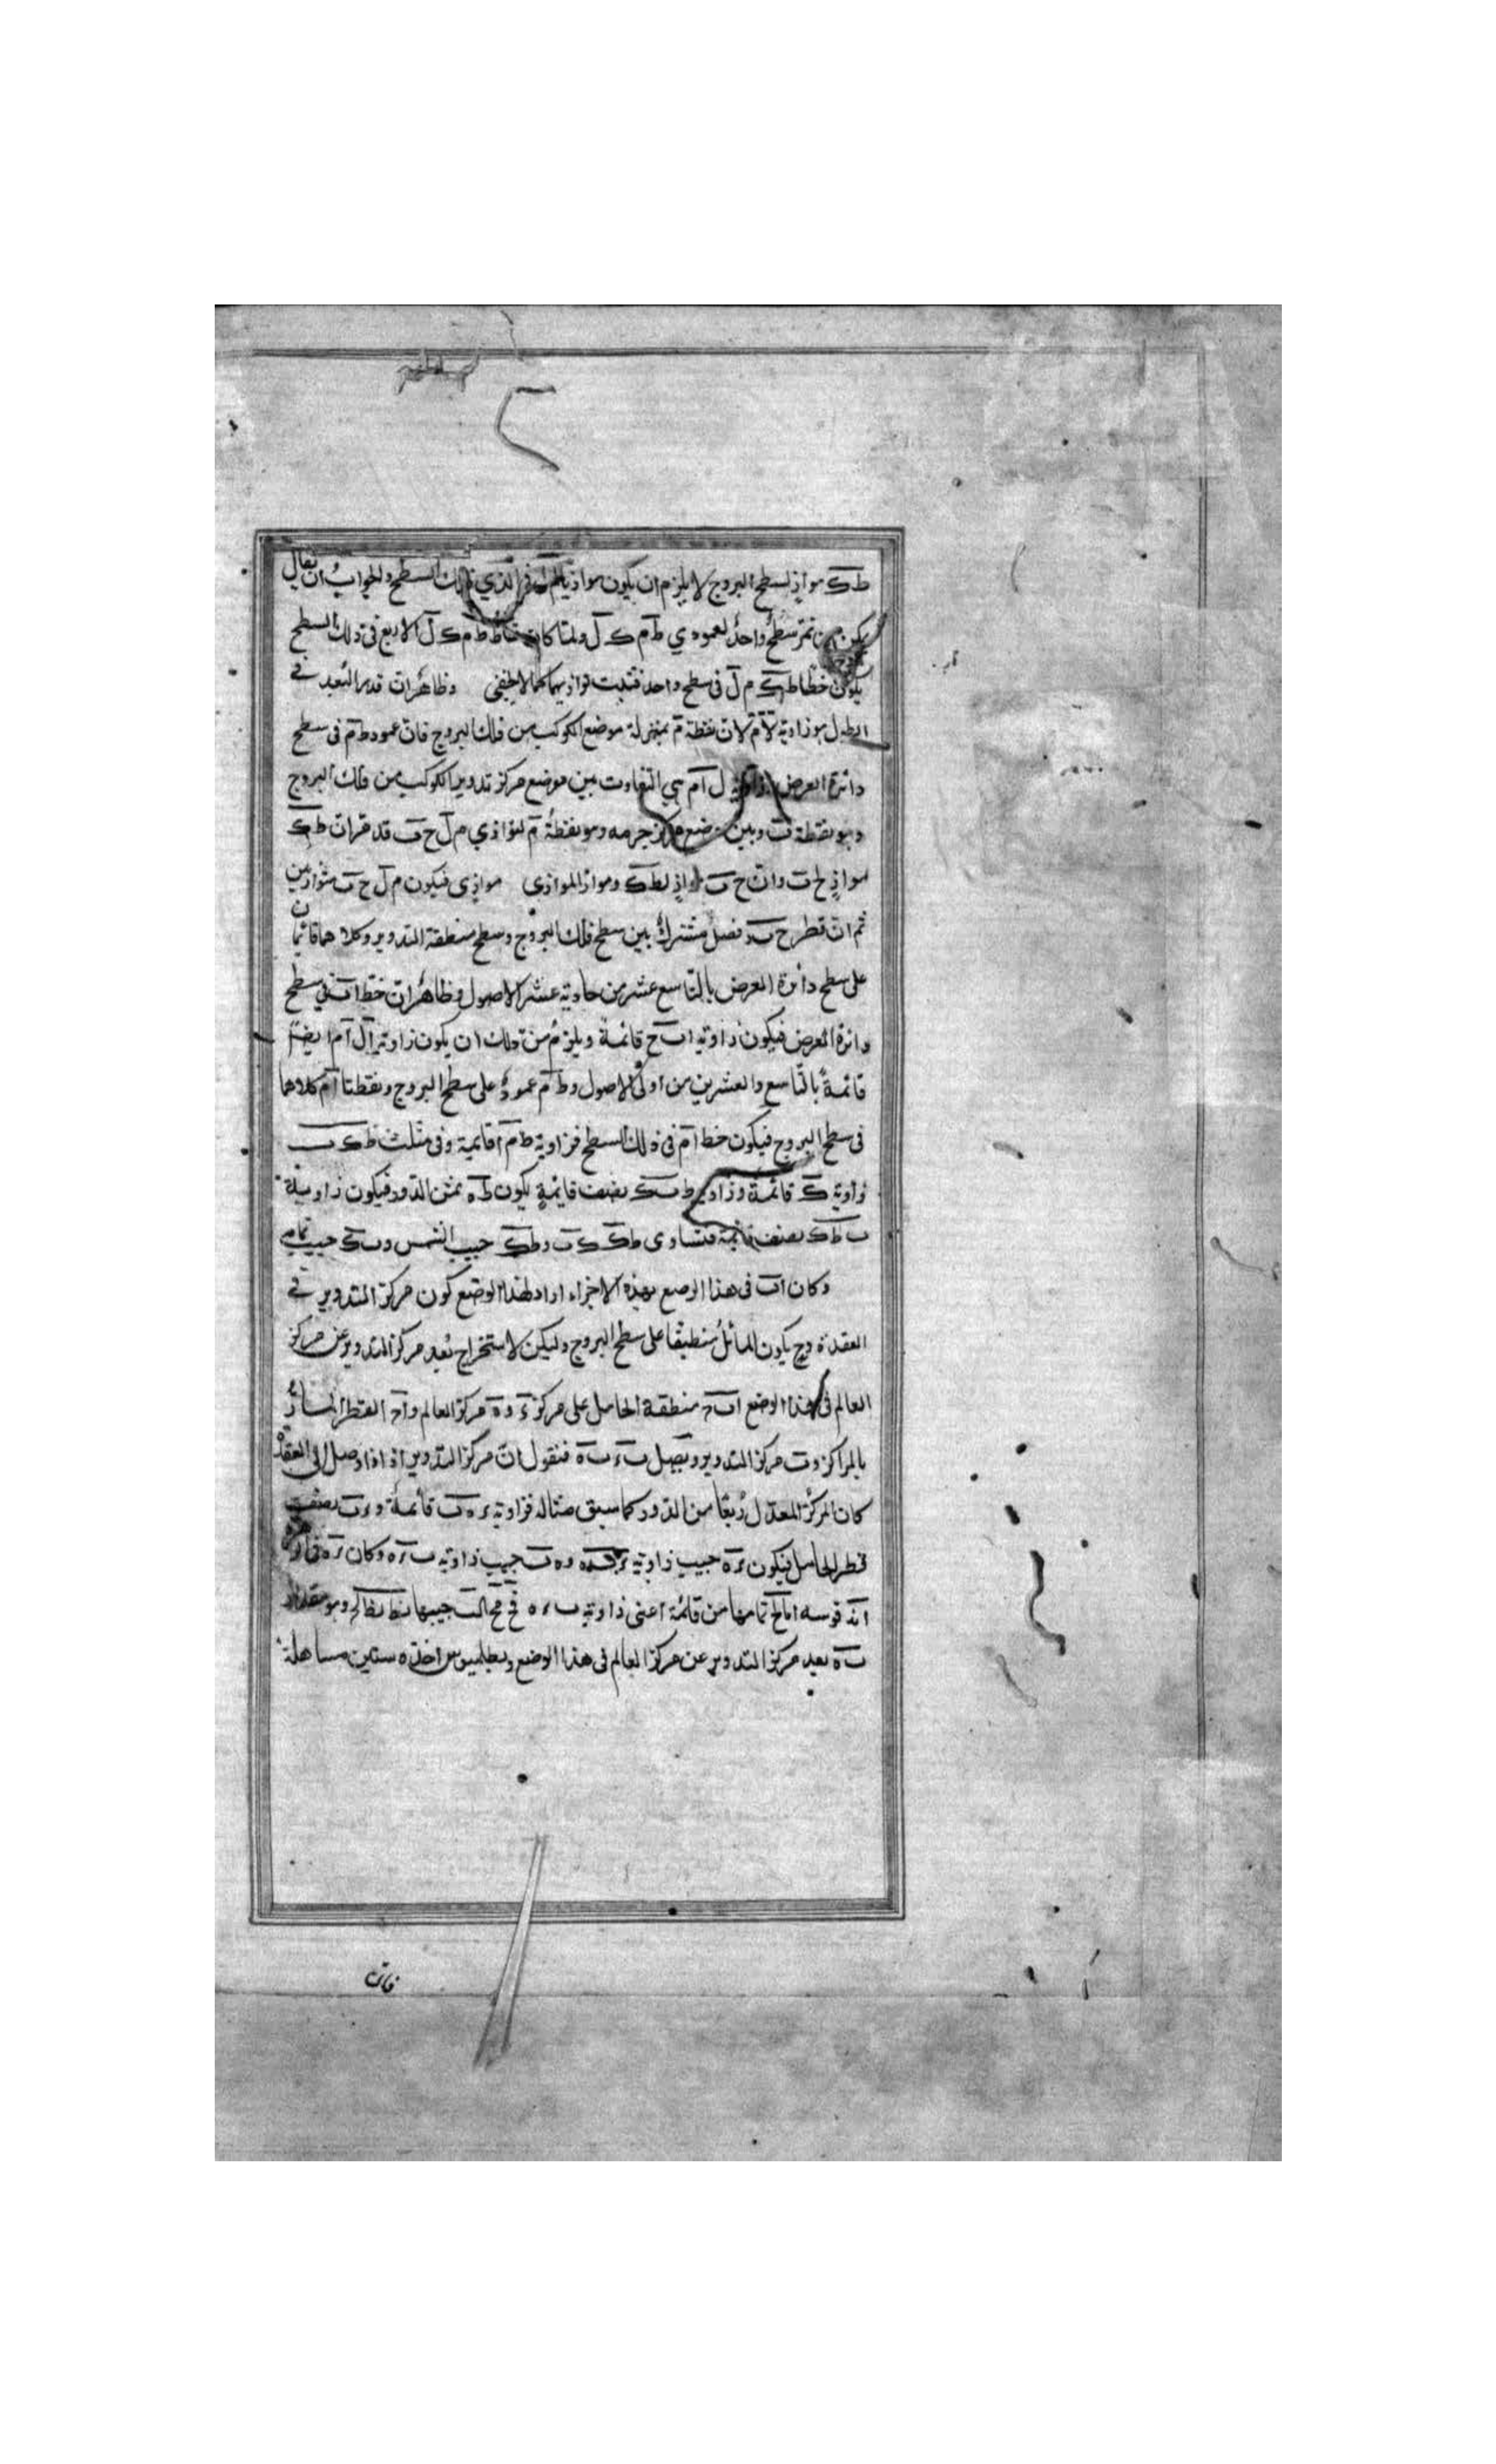 ط ك موازٍ لسطح البروج لا يلزم ان يكون موازيا الذي في ذلك السطح والجواب ان يقال
يكون نمر سطح واحد لعمودي ط م ك ل ولما كان نقاط ط م ك ل الاربع في ذلك السطح
يكون خطا ط ك م ل في سطح واحد فتثبت توازيهما كما لا يخفى وظاهر ان قدر البعد في
الطول هو زاوية ل ا م لان نقطة م بمنزلة موضع الكوكب من فلك البروج فان عمود ط م في سطح
دائرة العرض ل ا م هي التفاوت بين موضع مركز تدوير الكوكب من فلك البروج
وهو نقطة ب وبين موضع مركز جرمه وهو نقطة م لتوازي م ل ح ب قد مر ان ط ك
موازٍ ل ح ب وان ح ب موازٍ ل ط ك وموازٍ الموازي موازي فيكون م ل ح ب متوازيين
ثم ان قطر ح ب فصل مشترك بين سطح فلك البروج وسطح منطقة التدوير وكلاهما قائمان
على سطح دائرة العرض بالتاسع عشر من حادية عشر الاصول وظاهر ان خط ا ب في سطح
دائرة العرض فيكون زاوية ا ب ح قائمة ويلزم من ذلك ان يكون زاوية ا ل م ايضا
قائمةً بالتاسع والعشرين من اولى الاصول وط م عمودٌ على سطح البروج ونقطتا ا م كلاهما
في سطح البروج فيكون خط ا م في ذلك السطح فزاوية ط م ا قائمة وفي مثلث ط ك ب
زاوية ك قائمة وزاوية ط ب ك نصف قائمةٍ يكون ط ه ثمن الدور فيكون زاوية
ب ط ك نصف قائمة فتساوى ط ك ك ب و ط ك جيب الثمن و ب ك جيب تمامه
وكان ا ب في هذا الوضع بهذه الاجزاء اراد بهذا الوضع كون مركز التدوير في
العقدة وح يكون المائل منطبقا على سطح البروج وليكن لاستخراج بُعد مركز التدوير عن مركز
العالم في هذا الوضع ا ب ح منطقة الحامل على مركز ء و ه مركز العالم و ا ح القطر المار
بالمراكز و ب مركز التدوير ونصل ب ء ب ه فنقول ان مركز التدوير اذا وصل الى العقدة
كان المركز المعدل ربعًا من الدور كما سبق مثاله فزاوية ء ه ب قائمةٌ و ء ب نصف
قطر الحامل فيكون ء ه جيب زاوية ء ب ه و ه ب جيب زاوية ب ء ه وكان ء ه
قوسه تمامها من قائمة اعنى زاوية ب ء ه جيبها وهو مقدار
ب ه بعد مركز التدوير عن مركز العالم في هذا الوضع وبطلميوس اخذه ستين مساهلة
فان